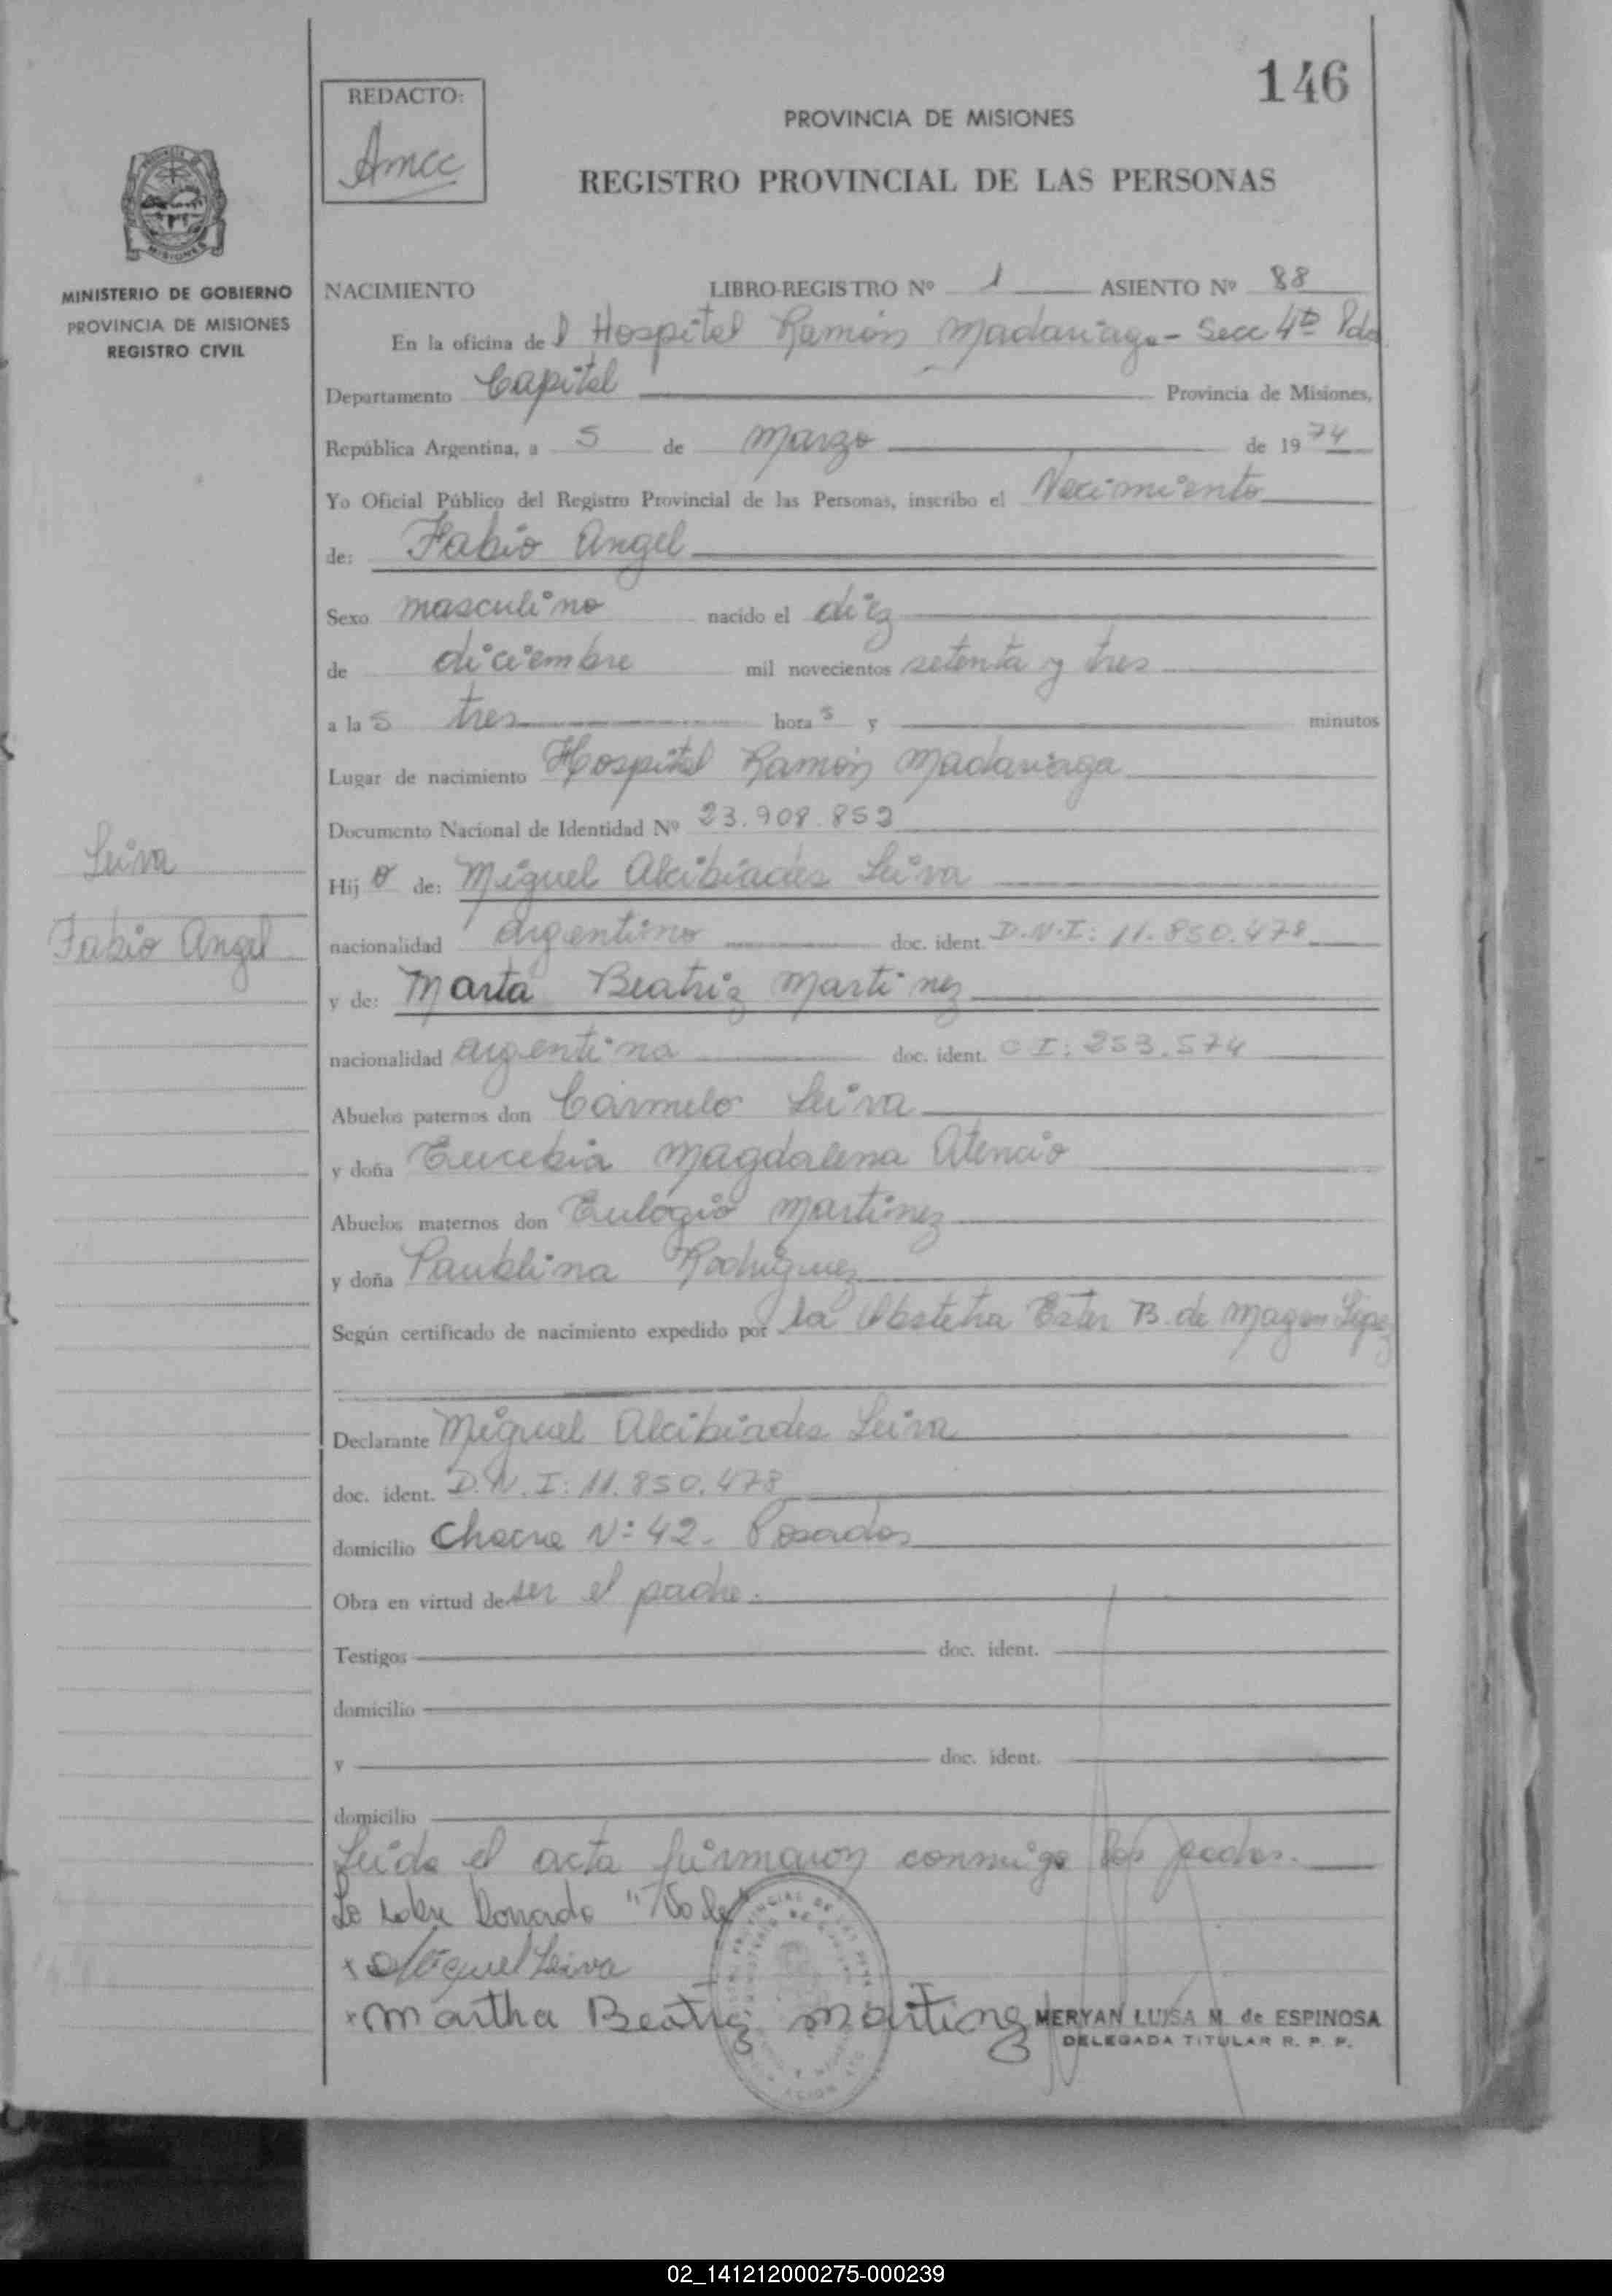 146
REDACTO:
Amcc
PROVINCIA DE MISIONES
REGISTRO PROVINCIAL DE LAS PERSONAS
MINISTERIO DE GOBIERNO
PROVINCIA DE MISIONES
REGISTRO CIVIL
NACIMIENTO LIBRO-REGISTRO Nº 1 ASIENTO Nº 88
En la oficina del Hospital Ramón Madariaga - Secc 4ta Pdas
Departamento Capital Provincia de Misiones,
República Argentina, a 5 de Marzo de 1974
Yo Oficial Público del Registro Provincial de las Personas, inscribo el Nacimiento
de: Fabio Angel
Sexo masculino nacido el diez
de diciembre mil novecientos setenta y tres
a las tres horas y minutos
Lugar de nacimiento Hospital Ramón Madariaga
Documento Nacional de Identidad Nº 23.908.852
Leiva
Fabio Angel
Hijo de: Miguel Alcibiades Leiva
nacionalidad argentino doc. ident. D.N.I: 11.850.478
y de: Marta Beatriz Martinez
nacionalidad argentina doc. ident. C I: 253.574
Abuelos paternos don Carmelo Leiva
y doña Eucebia Magdalena Atencio
Abuelos maternos don Eulogio Martinez
y doña Paublina Rodriguez
Según certificado de nacimiento expedido por la Obstetra Ester B. de Magan López
Declarante Miguel Alcibiades Leiva
doc. ident. D.N.I: 11.850.478
domicilio Chacra Nº 42. Posadas
Obra en virtud de ser el padre.
Testigos doc. ident.
domicilio
y doc. ident.
domicilio
Leida el acta firmaron conmigo los padres.
Lo sobre borrado "Vale"
x Miguel Leiva
x Martha Beatriz Martinez
MERYAN LUISA M. de ESPINOSA
DELEGADA TITULAR R. P. P.
02_141212000275-000239